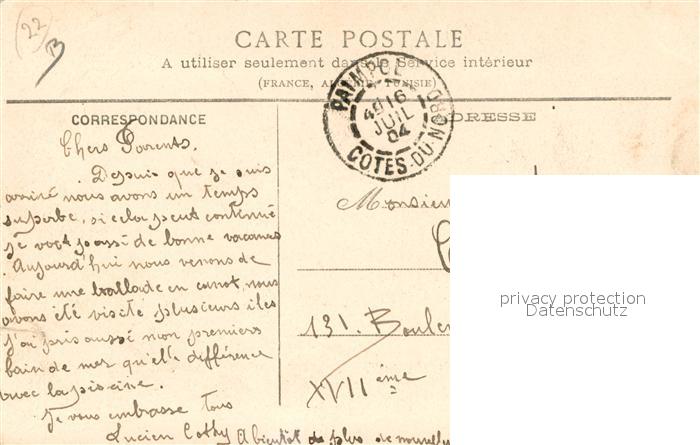 22
CARTE POSTALE
A utiliser seulement dans le Service intérieur
(FRANCE, ALGÉRIE, TUNISIE)
PAIMPOL
4E 16
JUIL
04
COTES-DU-NORD
CORRESPONDANCE
ADRESSE
Chers Parents.
Depuis que je suis
arrivé nous avons un temps
superbe, si cela peut continué
je vois passé de bonne vacances
Aujourd'hui nous venons de
faire une ballade en canot, nous
avons été visité plusieurs iles
j'ai pris aussi mon premiers
bain de mer qu'elle différence
avec la piscine.
Je vous embrasse tous
Lucien
A bientôt de plus de nouvelles
Monsieur
131. Boule
XVII ème
privacy protection
Datenschutz